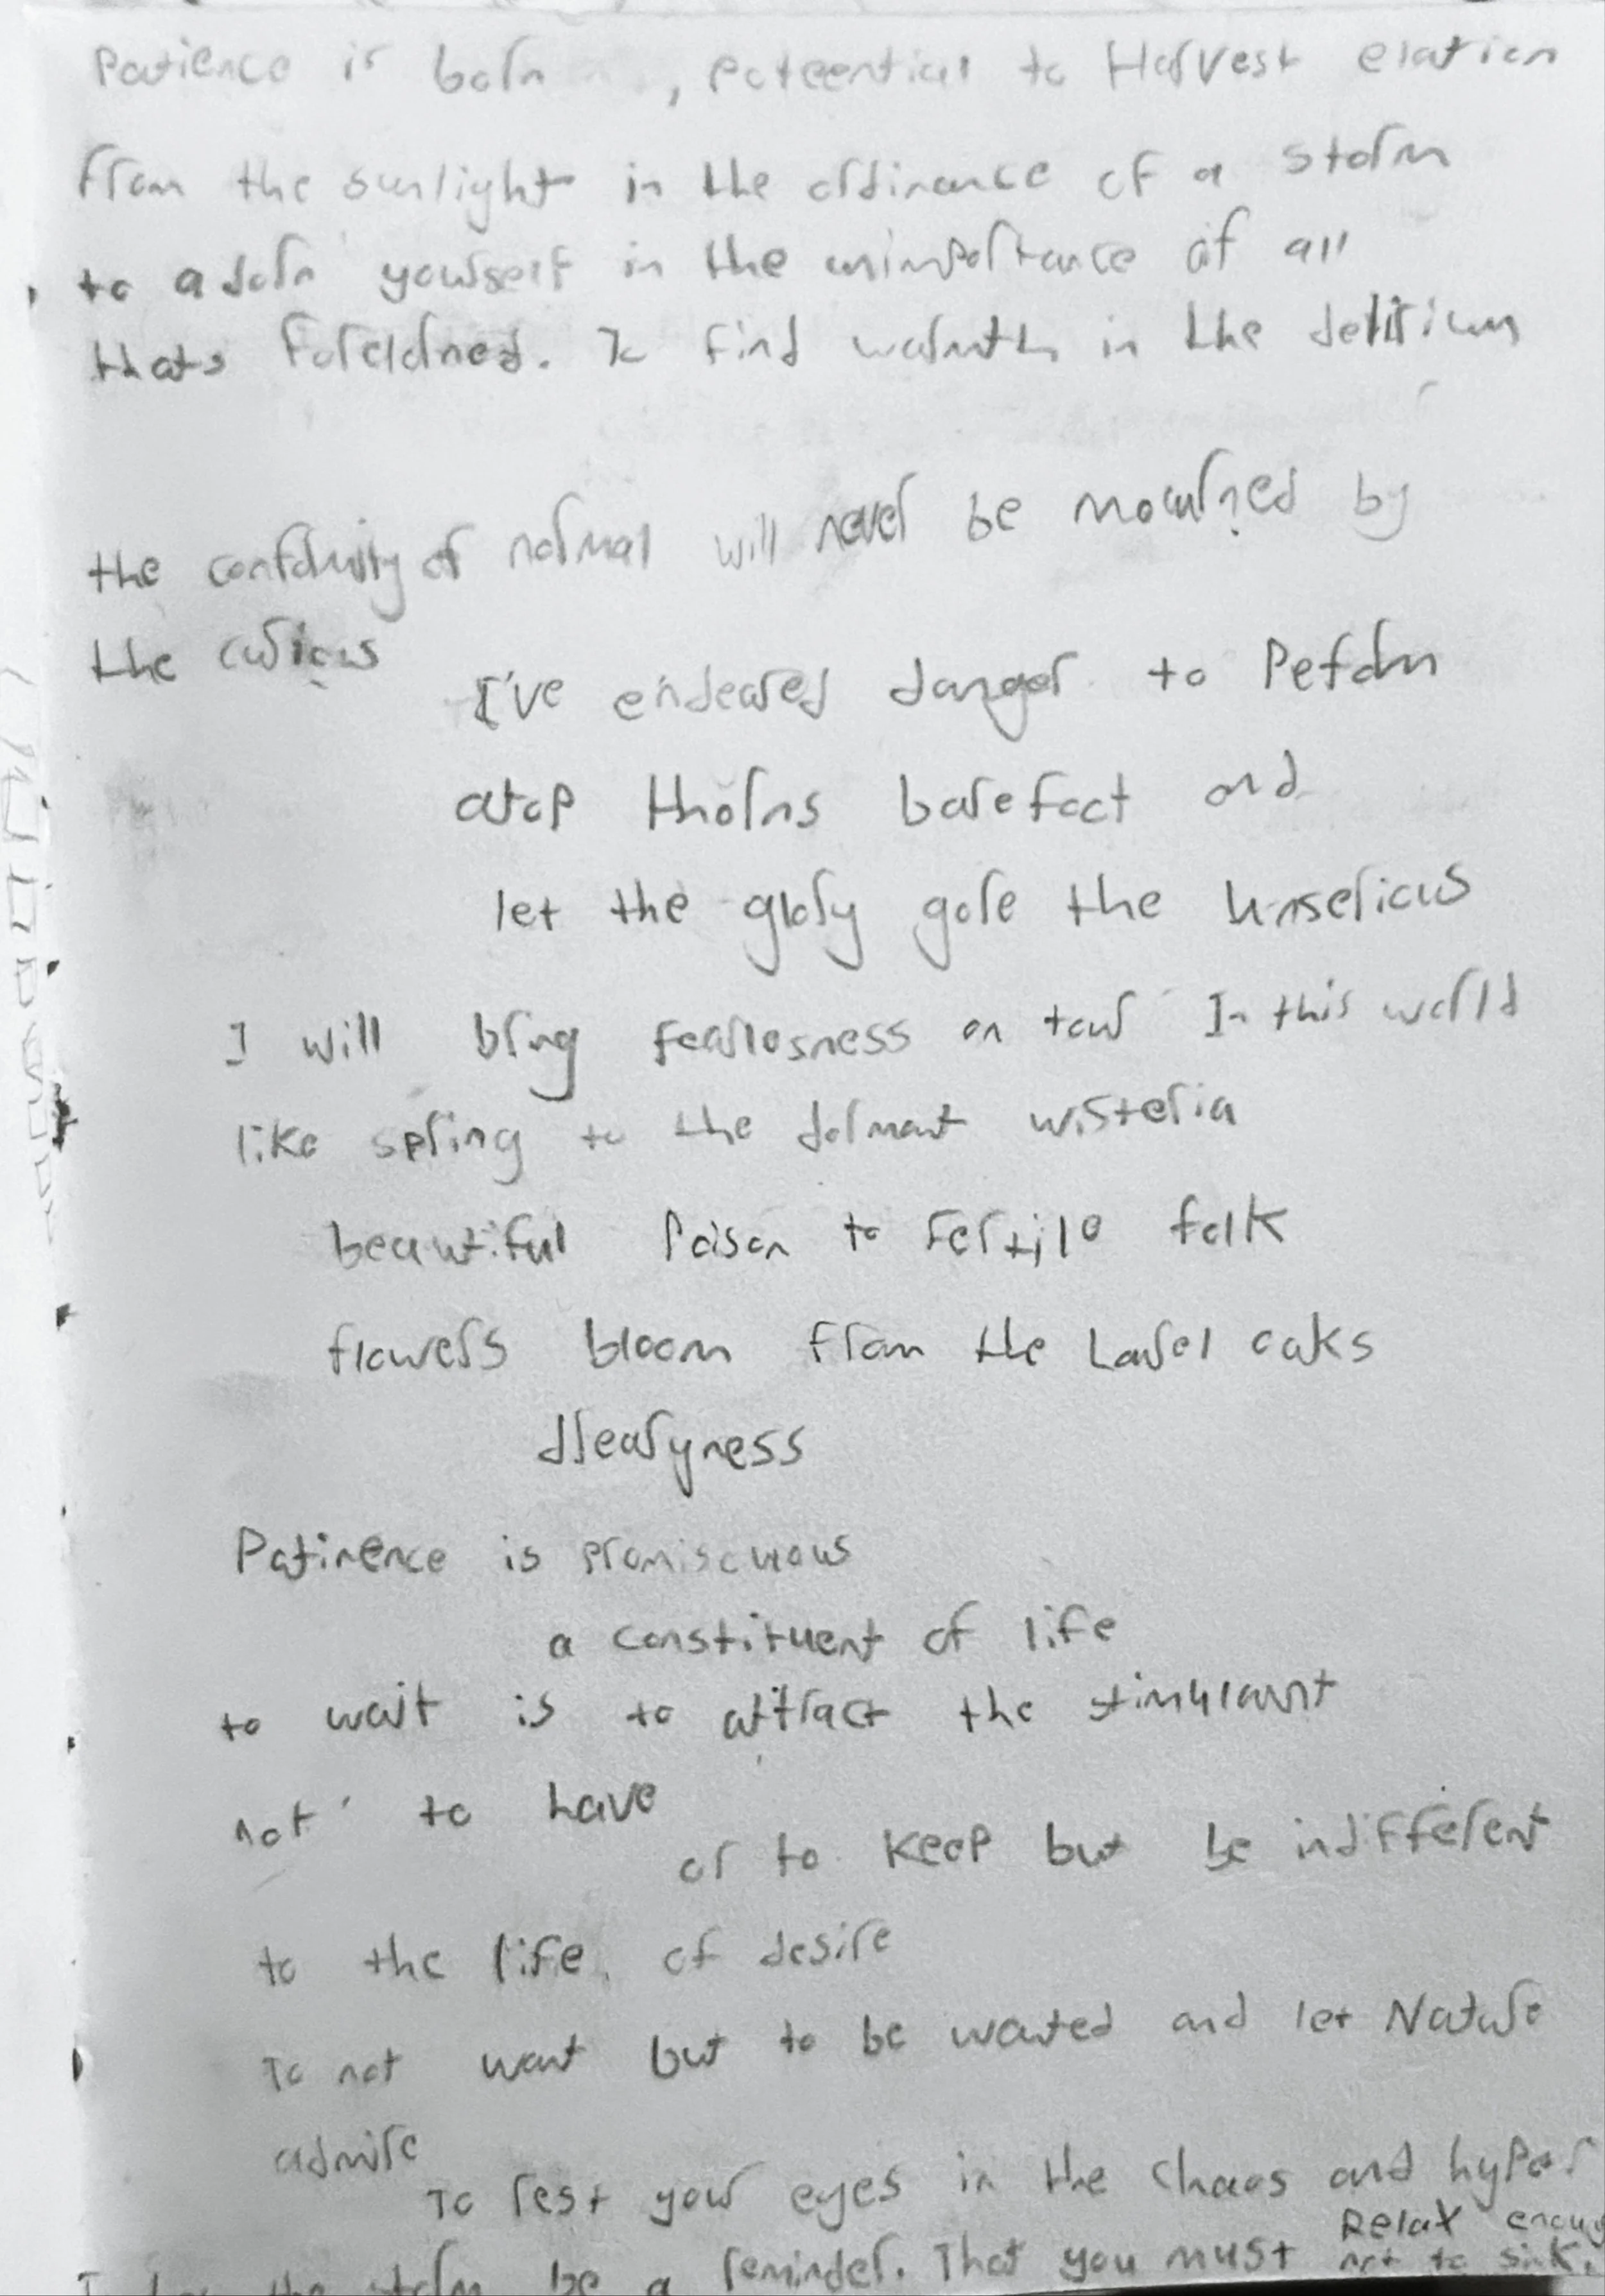 Patience is born , poteential to Harvest elation
from the sunlight in the ordinance of a storm
to adorn yourself in the unimportance of all
thats foreldned. To find warmth in the delirium
the conformity of normal will never be mourned by
the curious
I've endeared danger to Peform
atop thorns barefoot and
let the glory gore the unserious
I will bring fearlesness on tour In this world
like spring to the dormant wisteria
beautiful Poison to fertile folk
flowers bloom from the Laurel oaks
drearyness
Patirence is promiscuous
a constituent of life
to wait is to attract the stimulant
not to have
or to keep but be indifferent
to the life of desire
To not want but to be wanted and let Nature
admire
To rest your eyes in the chaos and hyper
Relax enoug
the storm be a reminder. That you must not to sink.